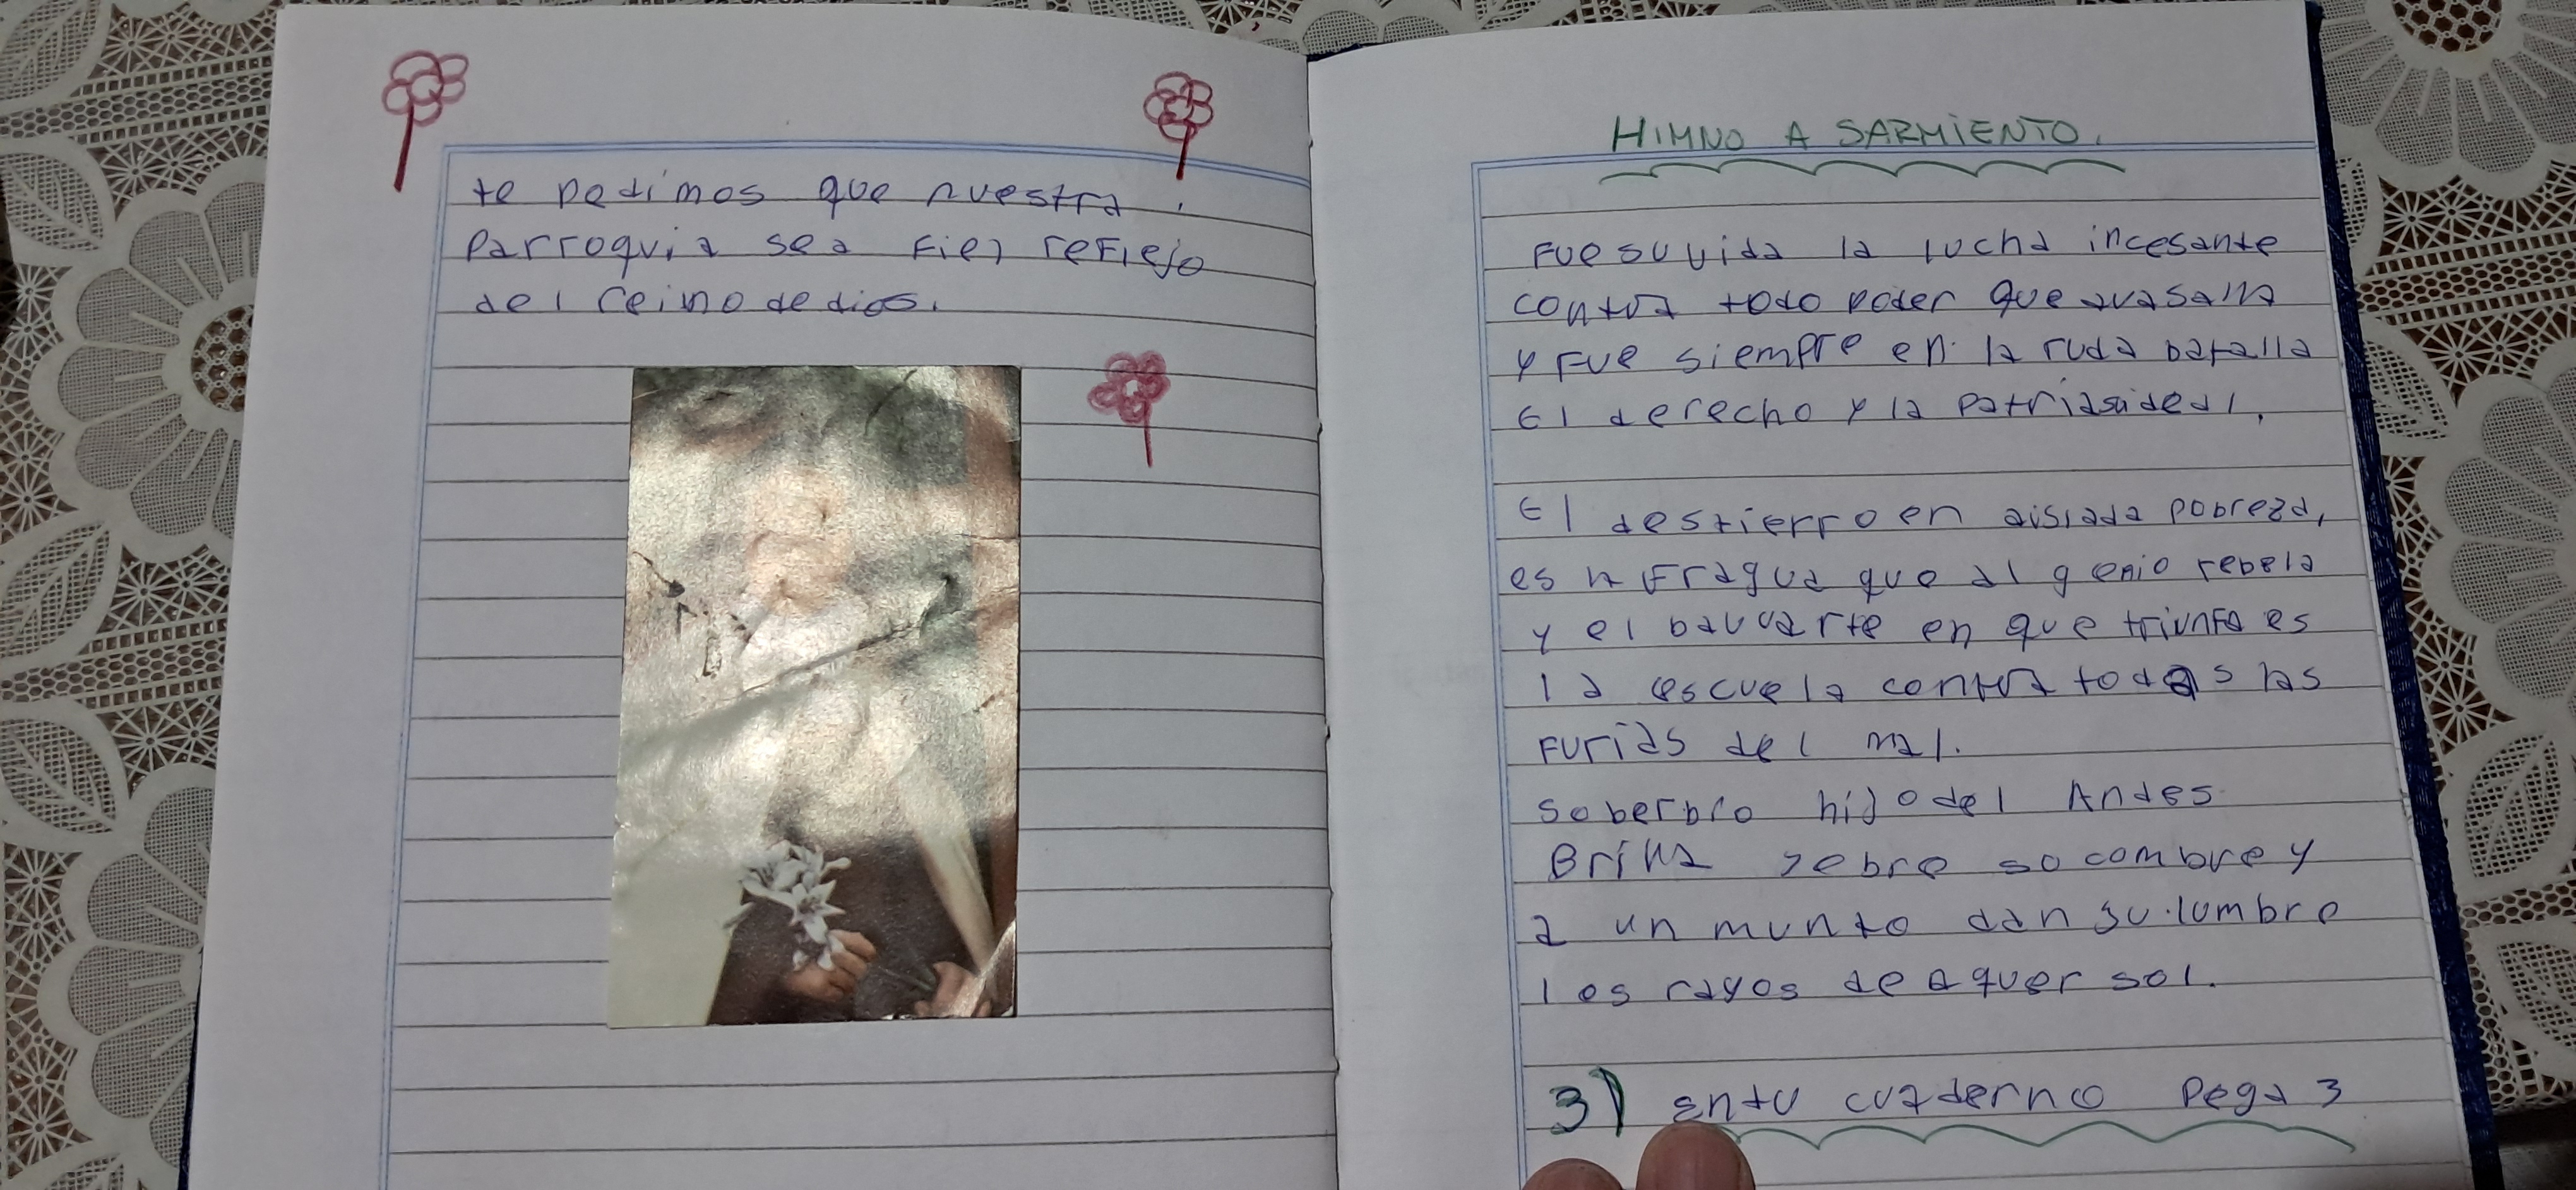 te pedimos que nuestra
Parroquia sea fiel reflejo
del reino de dios.
HIMNO A SARMIENTO.
Fue su vida la lucha incesante
contra todo poder que avasalla
y fue siempre en la ruda batalla
El derecho y la patria ideal.
El destierro en aislada pobreza,
es la fragua que al genio rebela
y el bauvarte en que triunfa es
la escuela contra todas las
furias del mal.
soberbio hijo del Andes
Brilla sobre so combre y
a un mundo dan su lumbre
los rayos de aquer sol.
3) En tu cuaderno pega 3